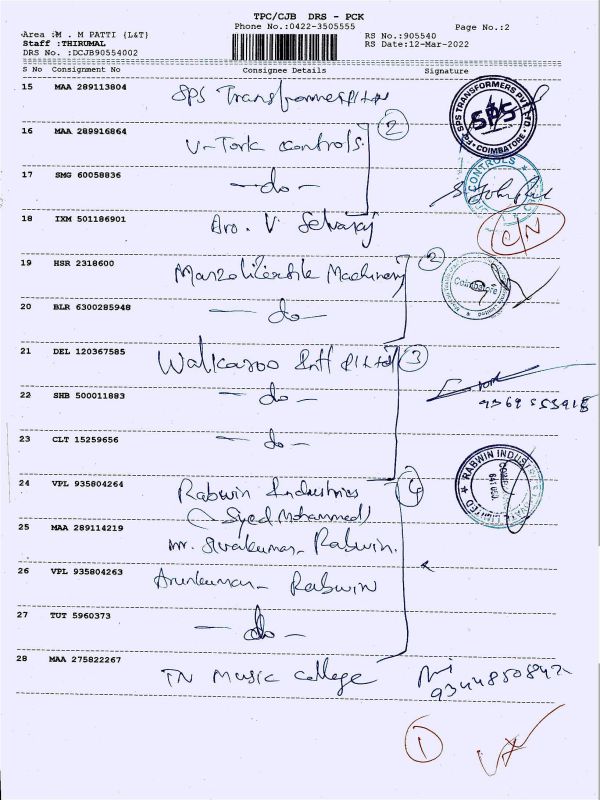 TPC/CJB DRS - PCK
Phone No.:0422-3505555
Page No.:2
Area :M . M PATTI {L&T}
Staff :THIRUMAL
DRS No. :DCJB90554002
RS No.:905540
RS Date:12-Mar-2022
S No Consignment No Consignee Details Signature
15 MAA 289113804 SPS Transformers P Ltd
SPS TRANSFORMERS PVT. LTD.
SPS
COIMBATORE
16 MAA 289916864 V-Tork Controls. 2
17 SMG 60058836 - do -
CONTROLS
18 IXM 501186901 Aro. V. Selvaraj
C/N
19 HSR 2318600 Marzoli Textile Machinery 2
Coimbatore
20 BLR 6300285948 - do -
21 DEL 120367585 Walkaroo Intl P Ltd 3
22 SHB 500011883 - do -
23 CLT 15259656 - do -
24 VPL 935804264 Rabwin Industries 4
(Syed Mohammed)
RABWIN INDUSTRIES PRIVATE LIMITED
25 MAA 289114219 Mr. Sivakumar - Rabwin.
26 VPL 935804263 Arunkumar - Rabwin
27 TUT 5960373 - do -
28 MAA 275822267 TN Music College
1